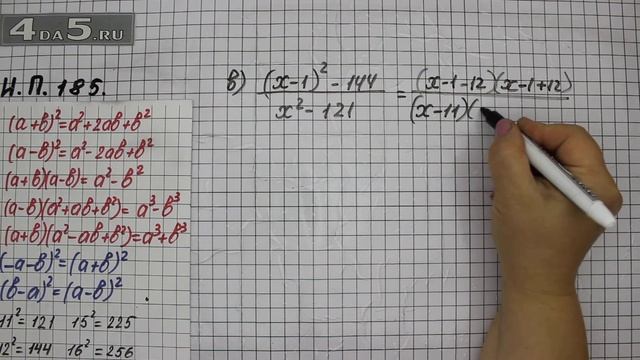 4DA5.RU
Н.П. 185.
(a+b)²=a²+2ab+b²
(a-b)²=a²-2ab+b²
(a+b)(a-b)=a²-b²
(a-b)(a²+ab+b²)=a³-b³
(a+b)(a²-ab+b²)=a³+b³
(-a-b)²=(a+b)²
(b-a)²=(a-b)²
11²=121 15²=225
12²=144 16²=256
в) (x-1)²-144 / x²-121 = (x-1-12)(x-1+12) / (x-11)(